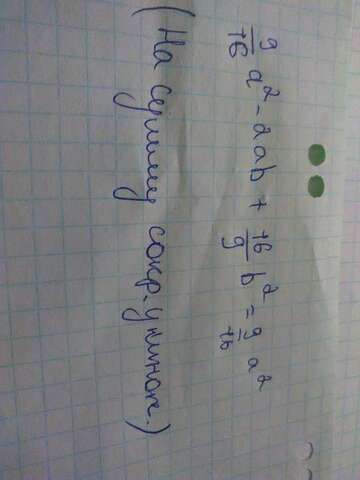 9/16 a² - 2ab + 16/9 b² = 9/16 a²
(На формулу сокр. умнож.)